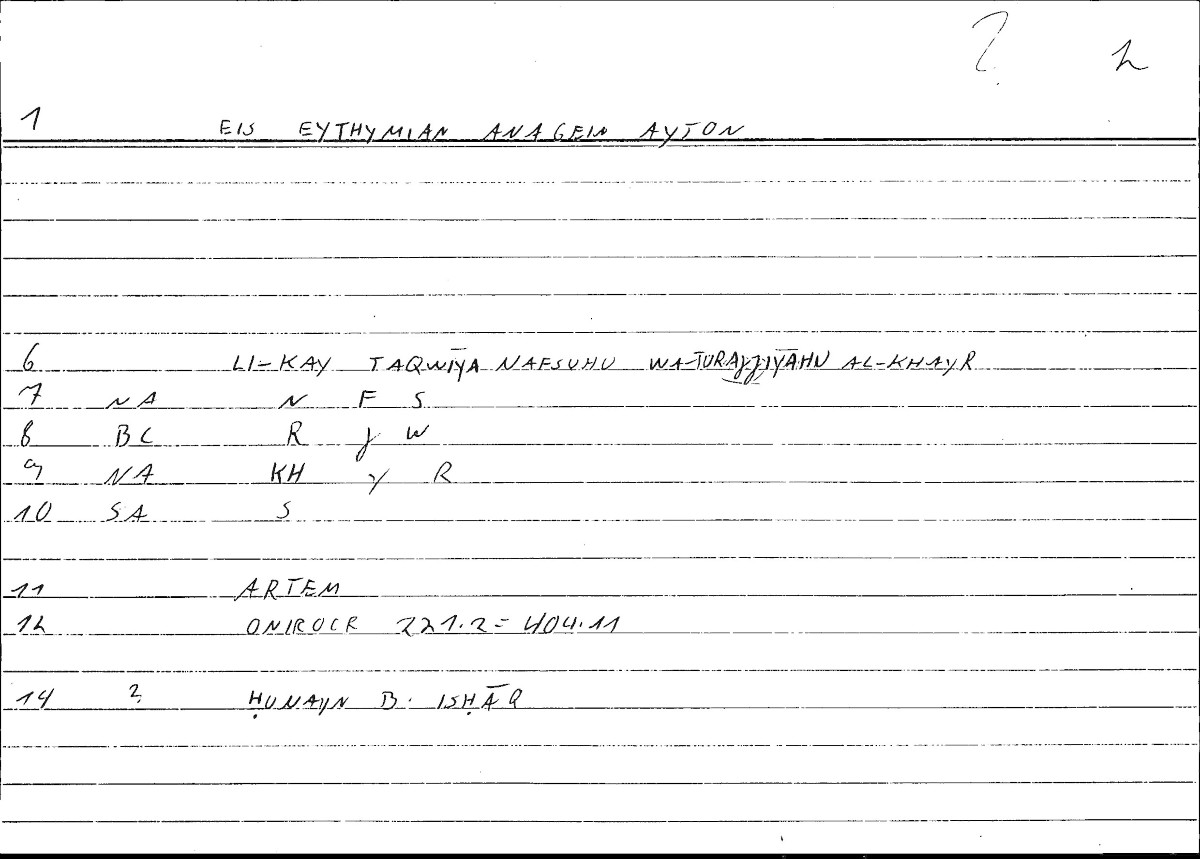 ? 2
1 EIS EYTHYMIAN ANAGEIN AYTON
6 LI-KAY TAQWĪYA NAFSUHU WA-TURAJJIYAHU AL-KHAYR
7 NA N F S
8 BC R J W
9 NA KH Y R
10 SA S
11 ARTEM
12 ONIROCR 221.2= 404.11
14 2 ḤUNAYN B. ISḤĀQ